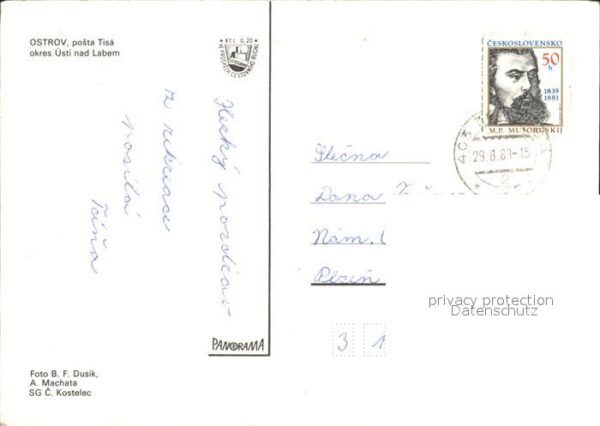 OSTROV, pošta Tisá
okres Ústí nad Labem
Kčs 0,20
Hezký pozdrav
z rekreace
posílá
Táňa
PANORAMA
Foto B. F. Dusík,
A. Machata
SG Č. Kostelec
ČESKOSLOVENSKO
50 h
1839
1881
M.P. MUSORGSKIJ
403
29.8.89-15
2
Slečna
Dana
Nám.
Plzeň
privacy protection
Datenschutz
3 1